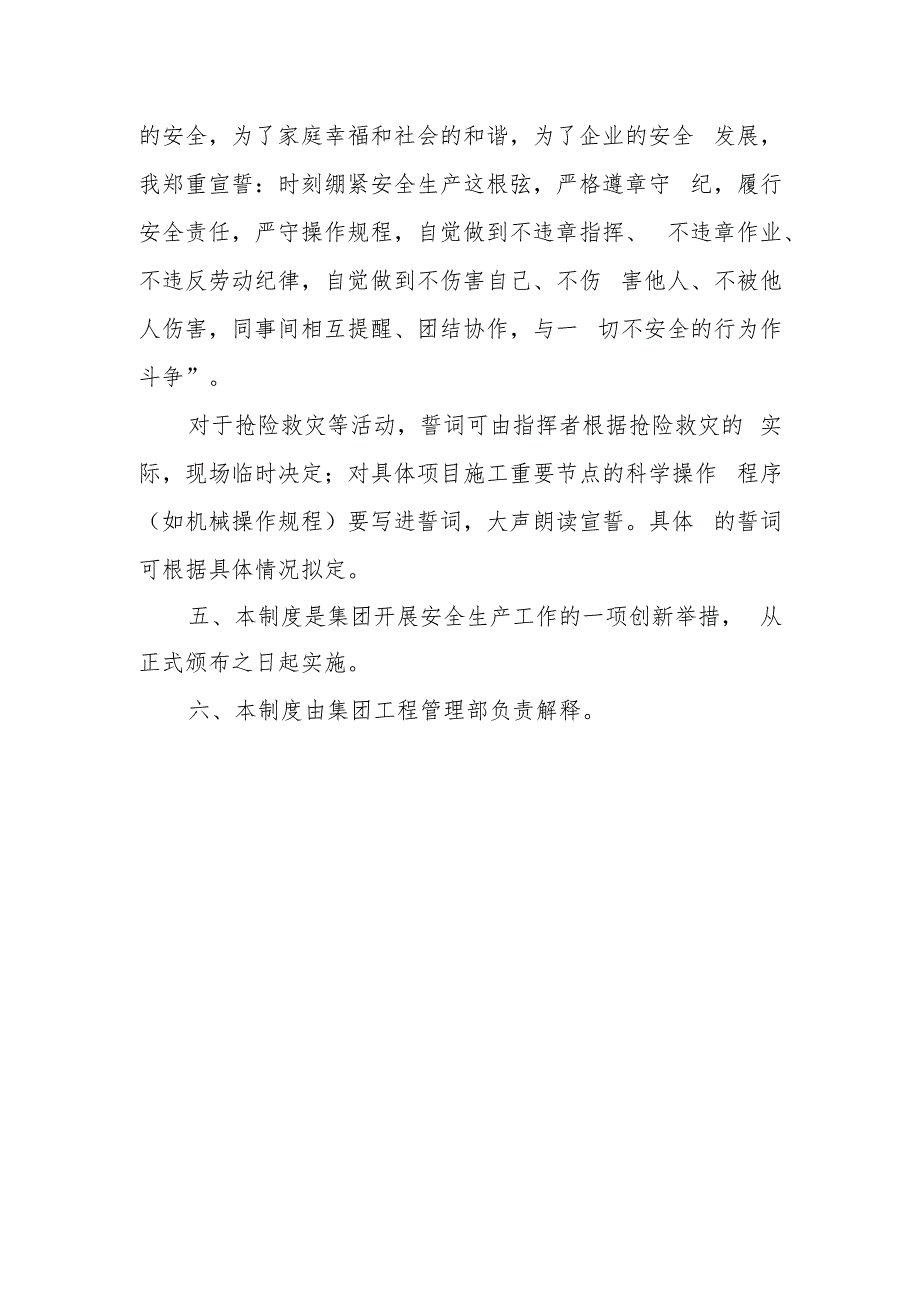 的安全，为了家庭幸福和社会的和谐，为了企业的安全 发展，
我郑重宣誓：时刻绷紧安全生产这根弦，严格遵章守 纪，履行
安全责任，严守操作规程，自觉做到不违章指挥、 不违章作业、
不违反劳动纪律，自觉做到不伤害自己、不伤 害他人、不被他
人伤害，同事间相互提醒、团结协作，与一 切不安全的行为作
斗争”。
对于抢险救灾等活动，誓词可由指挥者根据抢险救灾的 实
际，现场临时决定；对具体项目施工重要节点的科学操作 程序
（如机械操作规程）要写进誓词，大声朗读宣誓。具体 的誓词
可根据具体情况拟定。
五、本制度是集团开展安全生产工作的一项创新举措， 从
正式颁布之日起实施。
六、本制度由集团工程管理部负责解释。